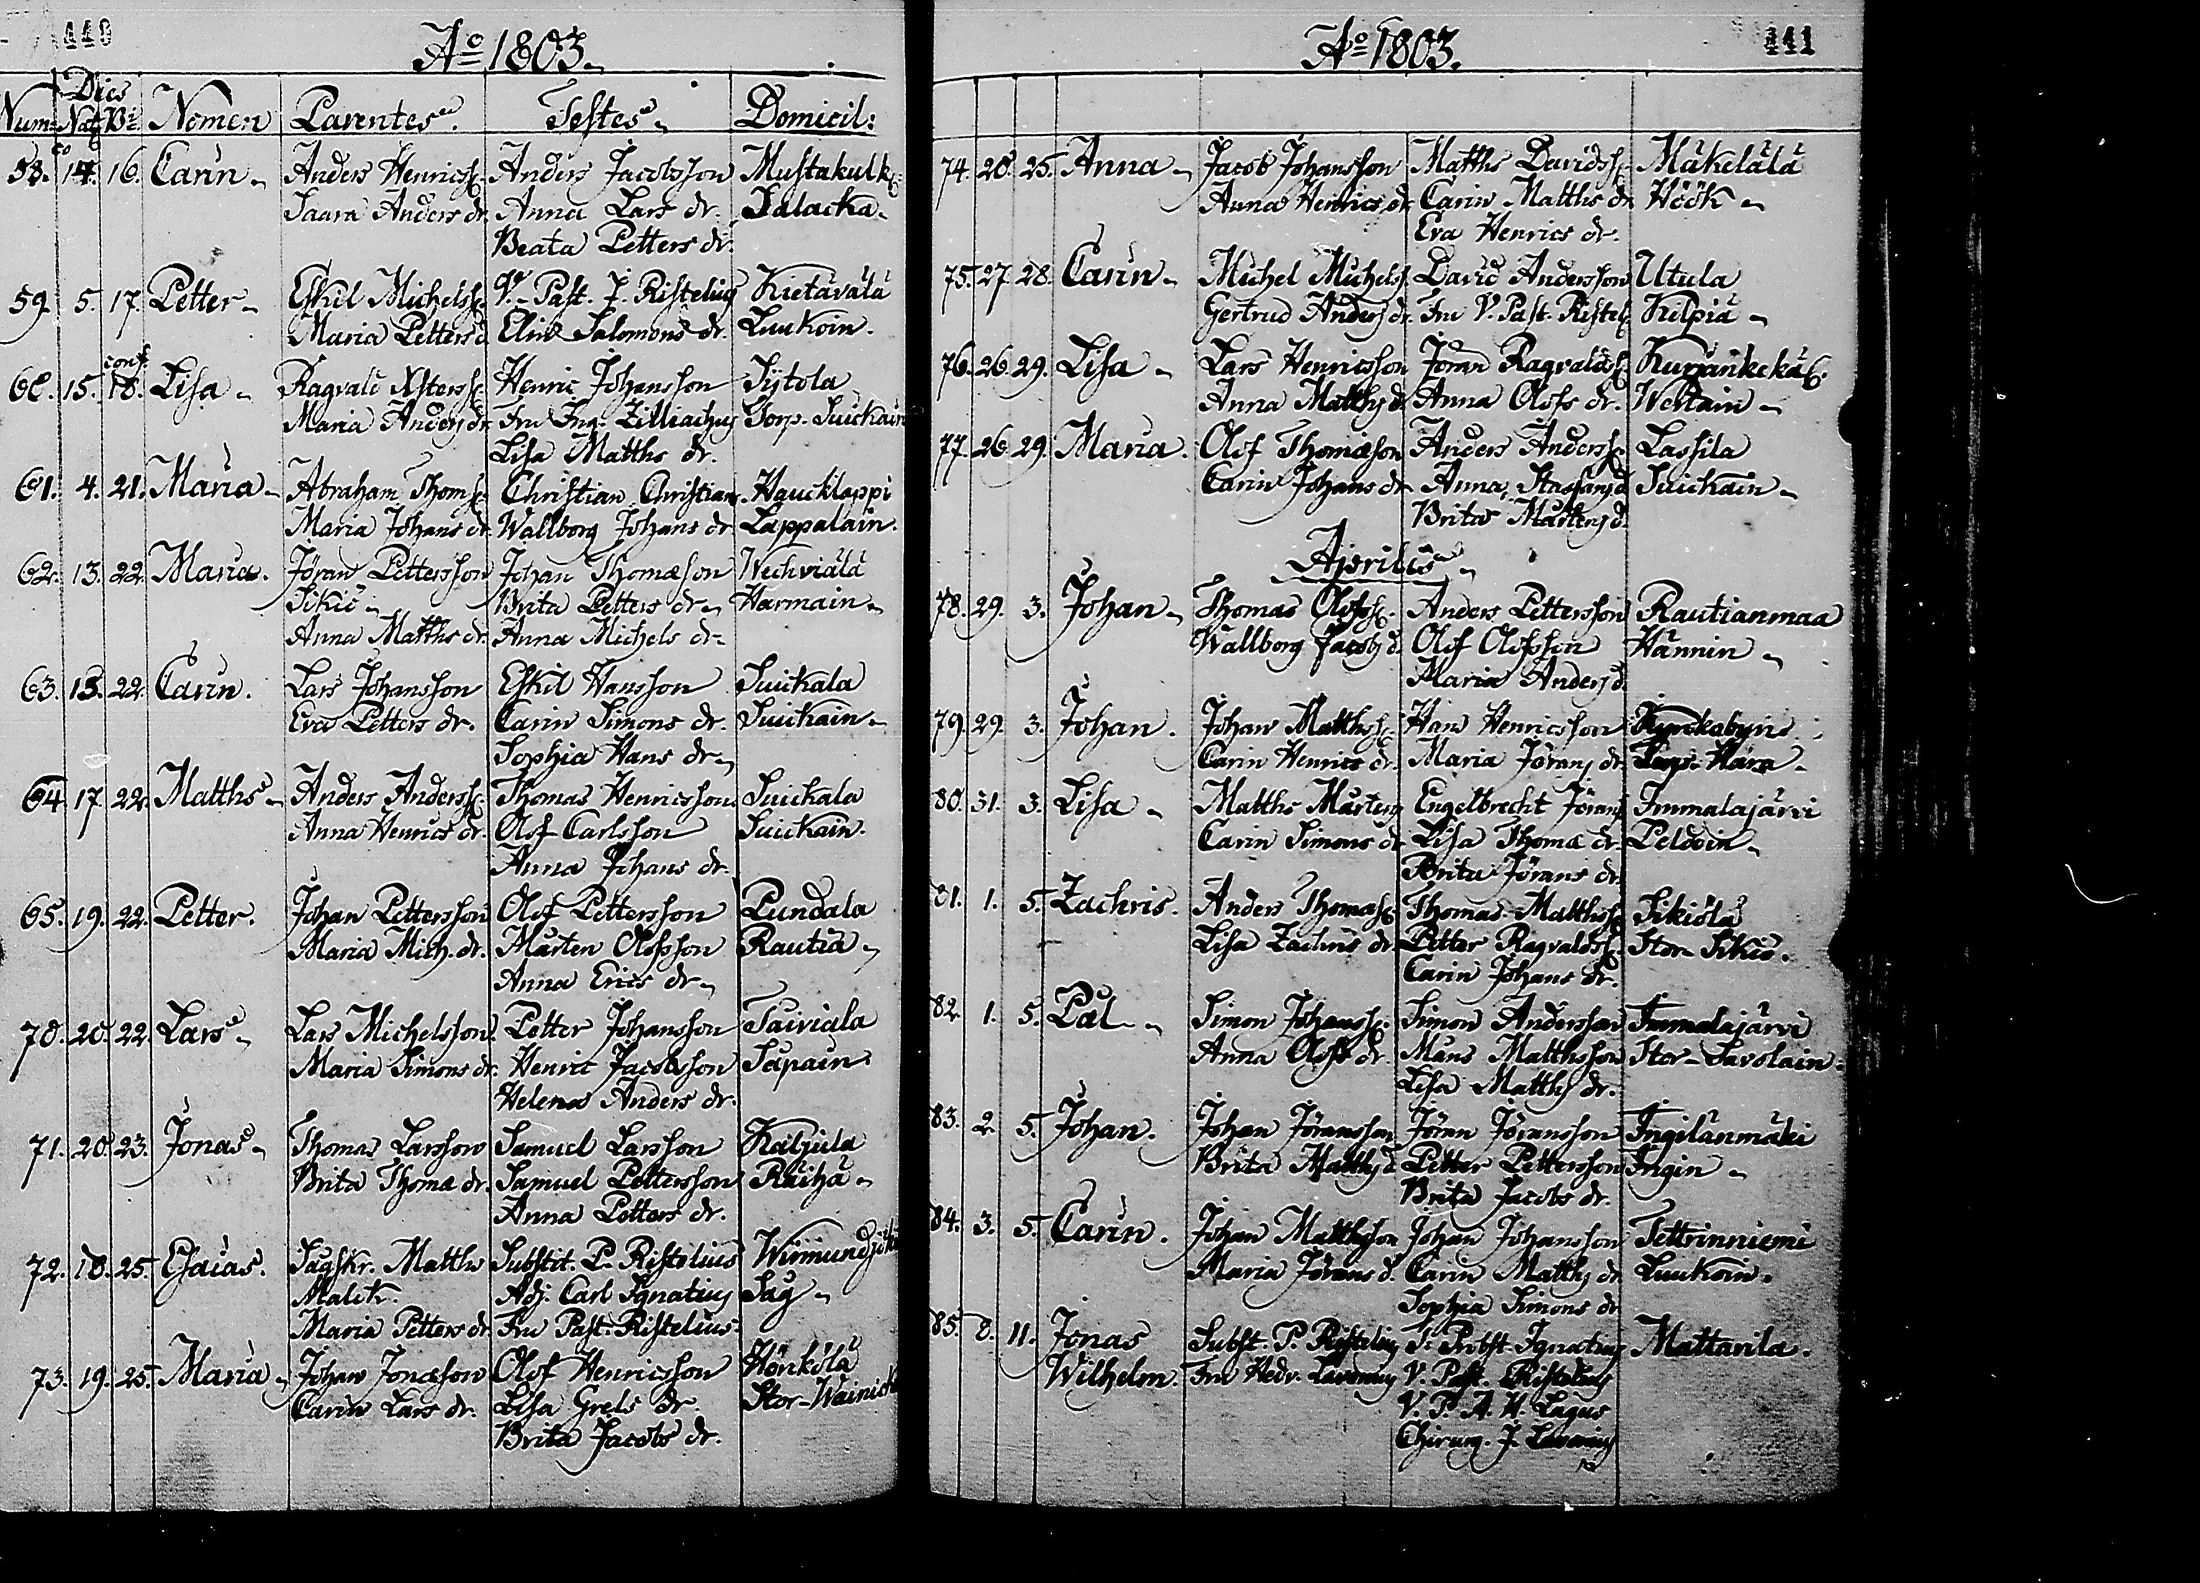 440
Aº 1803.
Dies
Num: Nat: Bi: Nomen Parentes. Testes Domicil:
58. 14. 16. Carin Anders Henrics. Anders Jacobsson Mustakulk
Saara Anders dr. Anna Lars dr. Jalacka
Beata Petters dr.
59. 5. 17. Petter Eskil Michels. V. Past. J. Ristelius Kietävälä
Maria Petters d. Elin Salomons dr. Luukoin.
conf.
60. 15. 18. Lisa Ragvald Henric Johansson Sijtola
Maria Anders dr. Fru Ing. Zilliachus Torp. Suickain
Lisa Matths dr.
61. 4. 21. Maria Abraham Thoms. Christian Christians. Haucklappi
Maria Johans dr. Wallborg Johans dr. Lappalain.
62. 13. 22. Maria. Jöran Pettersson Johan Thomæson Wechviälä
Sikiö Brita Petters dr. Harmain
Anna Matths dr. Anna Michels dr.
63. 13. 22. Carin. Lars Johansson Eskil Hansson Suickala
Eva Petters dr. Carin Simons dr. Suickain
Sophia Hans dr.
64. 17. 22. Matths Anders Anderss. Thomas Henricsson Suickala
Anna Henrics dr. Olof Carlsson Suickain.
Anna Johans dr.
65. 19. 22. Petter. Johan Pettersson Olof Pettersson Pundala
Maria Mich. dr. Mårten Olofsson Rautia
Anna Erics dr.
70. 20. 22. Lars Lars Michelsson Petter Johansson Tairiala
Maria Simons dr. Henric Jacobsson Säpäin
Helena Anders dr.
71. 20. 23. Jonas Thomas Larsson Samuel Larsson Kaljula
Brita Thomæ dr. Samuel Pettersson Räihä
Anna Petters dr.
72. 18. 25. Esaias. Sågskr. Matths Substit. P. Ristelius
Malck. Adj. Carl Ignatius Såg
Maria Petters dr. Fru Past. Ristelius.
73. 19. 25. Maria Johan Jonæson Olof Henricsson Hönkölä
Carin Lars dr. Lisa Grels dr. Stor-Wainick
Brita Jacobs dr.
441
Aº 1803.
74. 20. 25. Anna Jacob Johansson Matths Davids. Mäkelälä
Anna Henrics dr. Carin Matths dr. Höök
Eva Henrics dr.
75. 27. 28. Carin Michel Michels. David Andersson Utula
Gertrud Anders dr. Fru V. Past. Ristel. Kilpiä
76. 26. 29. Lisa Lars Henricsson Jöran Ragvalds.
Anna Matths d. Anna Olofs dr. Wertain
77. 26. 29. Maria. Olof Thomæson Anders Anderss. Lassila
Carin Johans dr. Anna Staffans d. Suickain
Brita Mårtens d.
Aprilis
78. 29. 3. Johan Thomas Olofs. Anders Pettersson Rautianmaa
Wallborg Jacobs d. Olof Olofsson Hännin
Maria Anders d.
79. 29. 3. Johan. Johan Matths. Hans Henricsson Kyrckobyns
Carin Henrics dr. Maria Jörans dr.
80. 31. 3. Lisa Matths Mårtens. Engelbrecht Jörans. Immalajärvi
Carin Simons dr. Lisa Thomæ dr. Peldoin
Brita Jörans dr.
81. 1. 5. Zachris. Anders Thomas. Thomas Matths. Sikiölä
Lisa Zachris dr. Petter Ragvalds. Stor-Sikiö.
Carin Johans dr.
82. 1. 5. Pål Simon Johanss. Simon Andersson Immalajärvi
Anna Olofs dr. Måns Matthsson Stor-Savolain.
Lisa Matths dr.
83. 2. 5. Johan. Johan Jöransson Jöran Jöransson Ingilänmäki
Brita Matths d. Petter Pettersson Ingin
Brita Jacobs dr.
84. 3. 5. Carin. Johan Matthsson Johan Johansson Tettrinniemi
Maria Jörans d. Carin Matths dr. Luukoin.
Sophia Simons dr.
85. 8. 11. Jonas Subst. P. Ristelius Pr. Ignatius Mattarila.
Wilhelm. Fru Hedv. Lavonius V. Past. Ristelius
V. P. A. H. Lagus
Chirurg. J. Lavonius